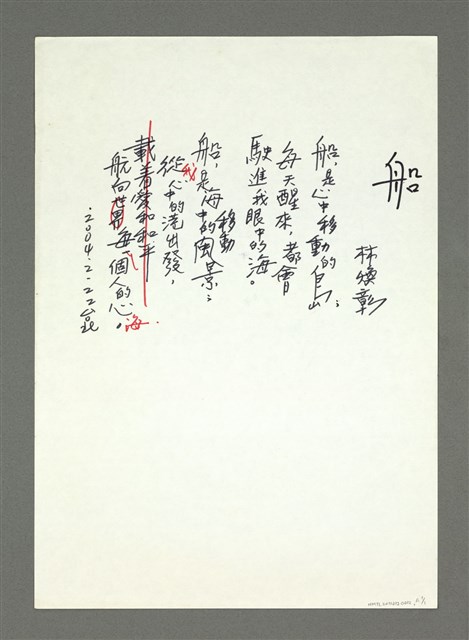 船
林煥彰
船，是心中移動的島；
每天醒來，都會
駛進我眼中的海。
船，是海中移動的風景；
從我心中的港出發，
載着愛和和平
航向世界每個人的心。海.
.2004.2.22